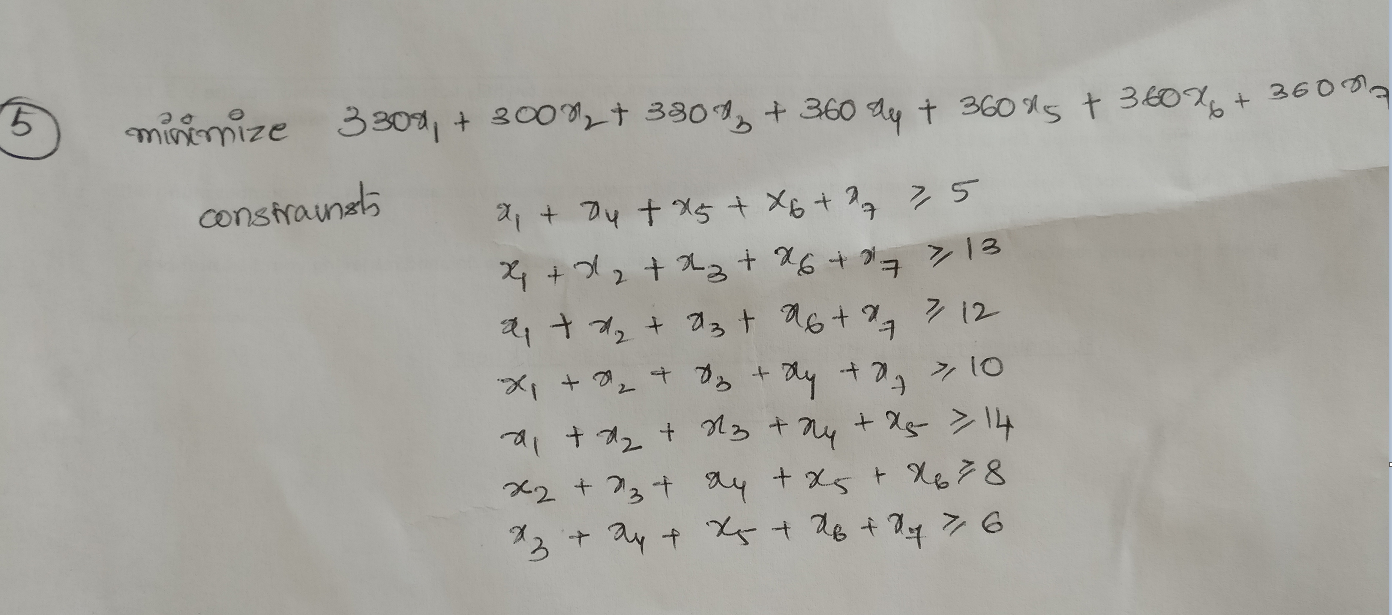 5 minimize 330x₁ + 300x₂ + 330x₃ + 360x₄ + 360x₅ + 360x₆ + 360x₇
constrainsts x₁ + x₄ + x₅ + x₆ + x₇ ≥ 5
x₁ + x₂ + x₃ + x₆ + x₇ ≥ 13
x₁ + x₂ + x₃ + x₆ + x₇ ≥ 12
x₁ + x₂ + x₃ + x₄ + x₇ ≥ 10
x₁ + x₂ + x₃ + x₄ + x₅ ≥ 14
x₂ + x₃ + x₄ + x₅ + x₆ ≥ 8
x₃ + x₄ + x₅ + x₆ + x₇ ≥ 6